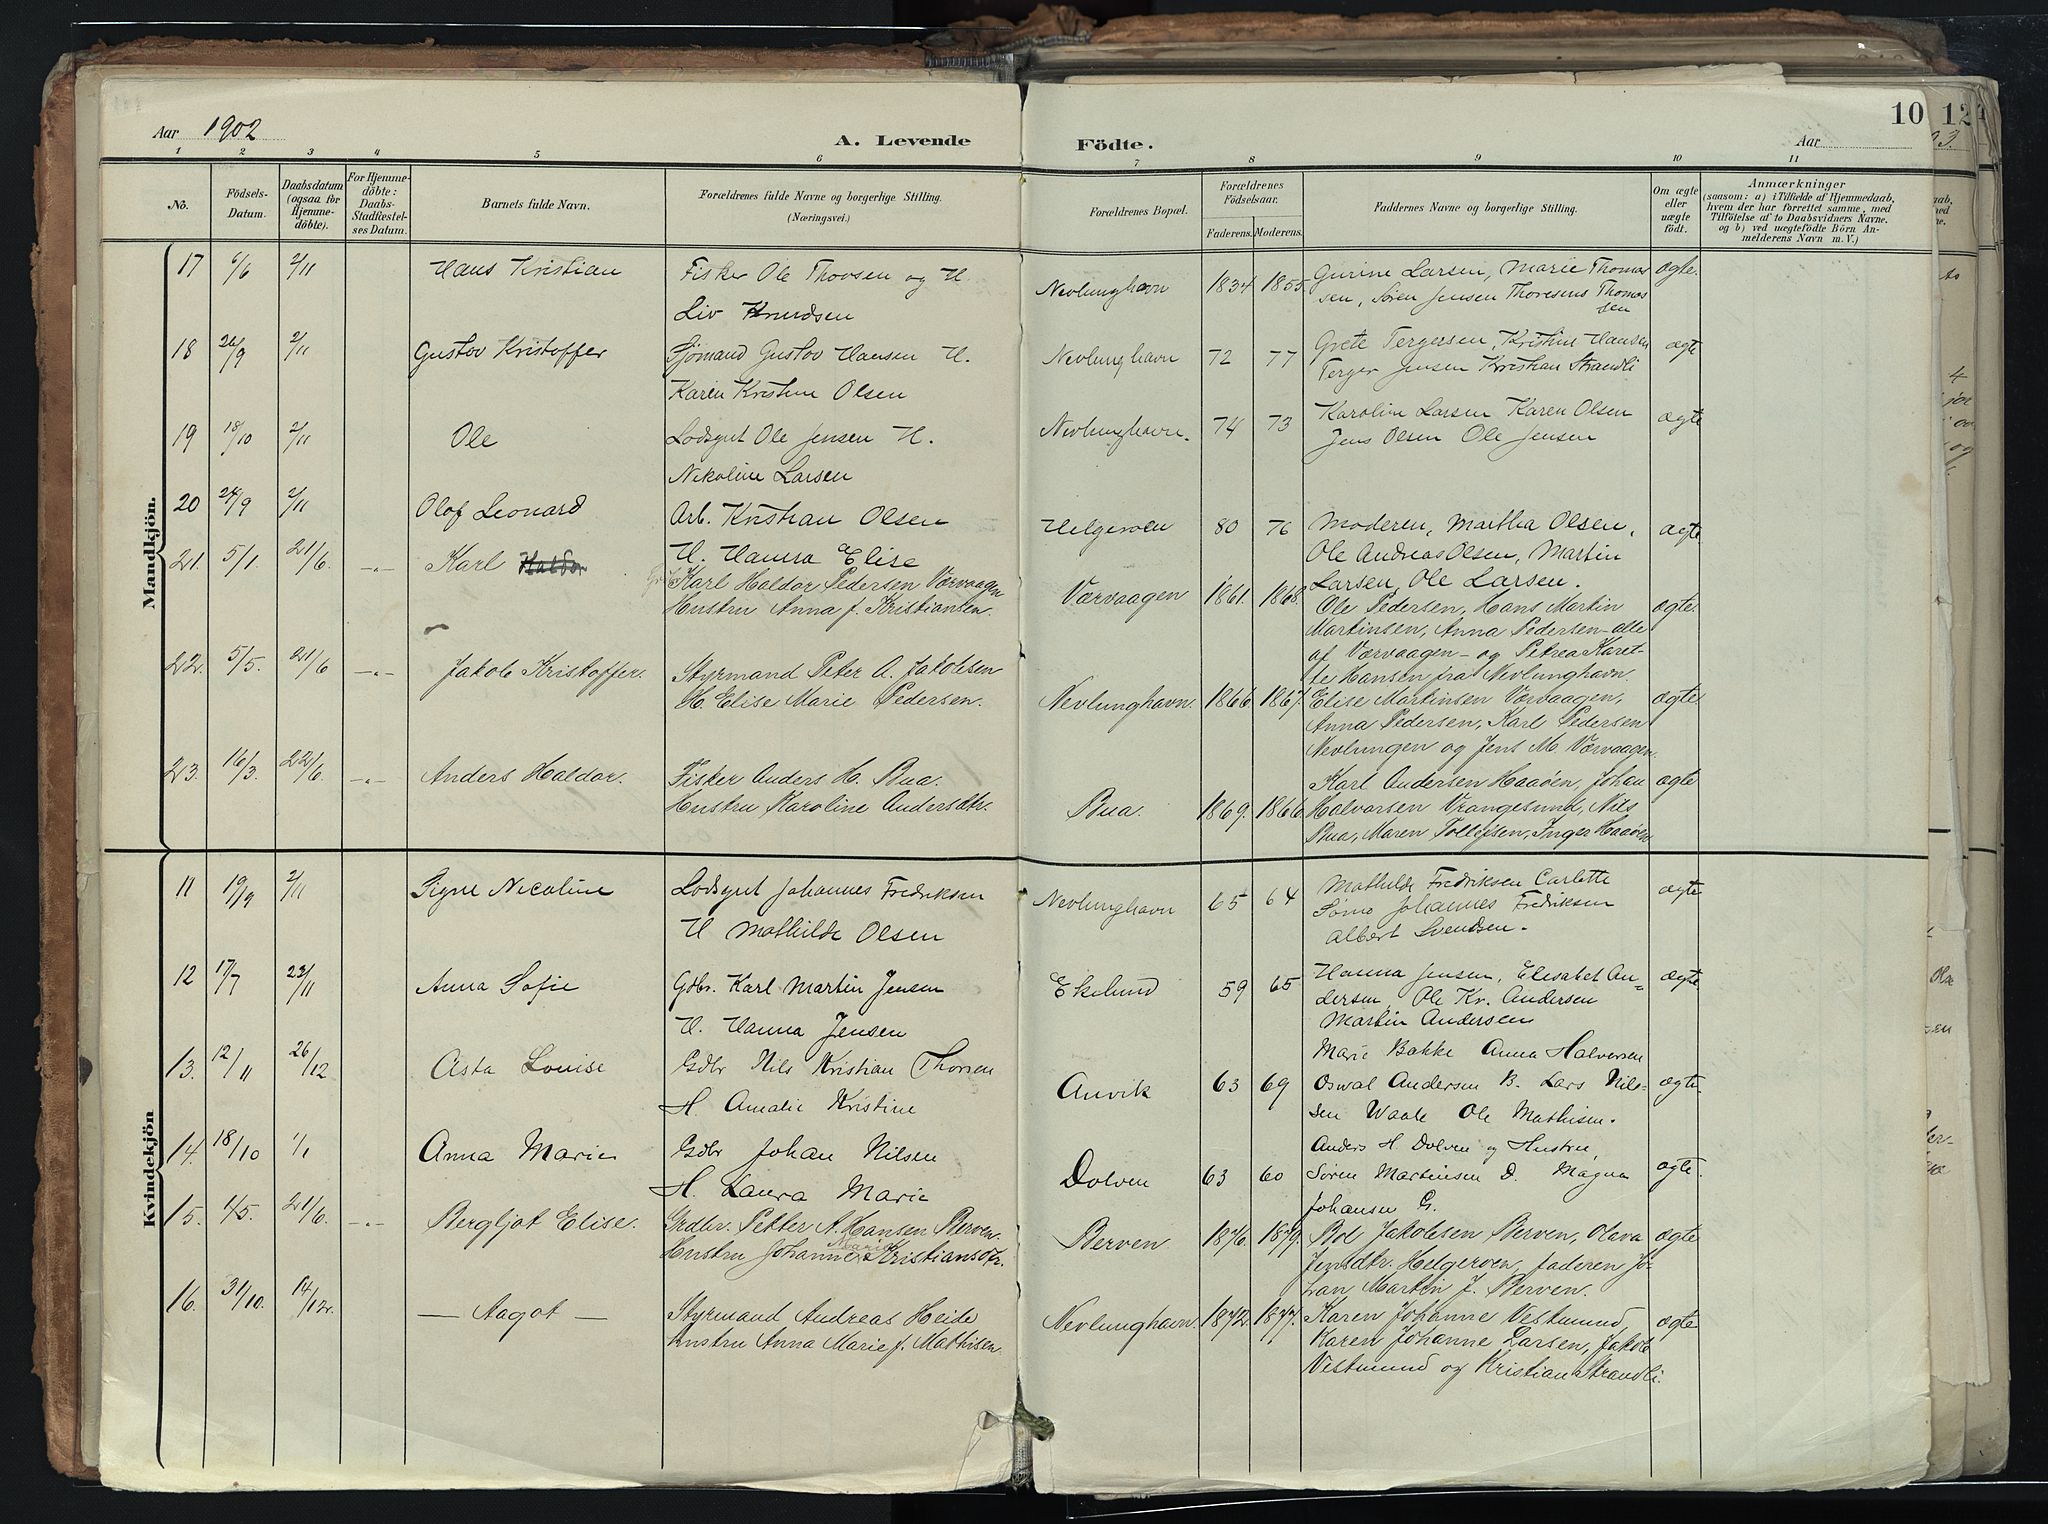 Aar 1902
A. Levende Födte.
Aar
10
12
1 2 3 4 5 6 7 8 9 10 11
No.
Födsels-Datum.
Daabsdatum (ogsaa for Hjemme-döbte).
For Hjemme-döbte: Daabs-Stadfæstel-ses Datum.
Barnets fulde Navn.
Forældrenes fulde Navne og borgerlige Stilling.
(Næringsvei.)
Forældrenes Bopæl.
Forældrenes Födselsaar.
Faderens. Moderens.
Faddernes Navne og borgerlige Stilling.
Om ægte eller uægte födt.
Anmærkninger
(saasom: a) i Tilfælde af Hjemmedaab,
hvem der har forrettet samme, med
Tilföielse af to Daabsvidners Navne.
og b) ved uægtefödte Börn An-
melderens Navn m. V.)
Mandkjön.
17 6/6 2/11 Hans Kristian Fisker Ole Thovsen og H. Nevlunghavn 1834 1855. Gurine Larsen, Marie Thomas ægte.
Liv Knudsen sen, Søren Jensen Thoresens Thomas
sen
18 26/9 2/11 Gustov Kristoffer Sjømand Gustov Hansen H. Nevlunghavn 72 77 Grete Tergersen, Kristine Hansen ægte
Karen Kristine Olsen Terger Jensen Kristian Strandli
19 18/10 2/11 Ole Lodsgut Ole Jensen H. Nevlunghavn. 74 73 Karoline Larsen Karen Olsen ægte
Nikoline Larsen Jens Olsen Ole Jensen
20 24/9 2/11 Olof Leonard Arb. Kristian Olsen Helgeroen 80 76 Moderen, Martha Olsen, ægte.
H. Hanna Elise Ole Andreas Olsen, Martin
Larsen, Ole Larsen.
21. 5/1. 21/6. -"- Karl Haldor Karl Haldor Pedersen Værvaagen Værvaagen 1861. 1868. Ole Pedersen, Hans Martin ægte.
Hustru Anna f. Kristiansen. Martinsen, Anna Pedersen - alle
af Værvaagen - og Petrea Karet-
te Hansen fra Nevlunghavn.
22. 5/5. 21/6 -"- Jakob Kristoffer. Styrmand Peter A. Jakobsen Nevlunghavn. 1866. 1867. Elise Martinsen Værvaagen, ægte.
H. Elise Marie Pedersen. Anna Pedersen, Karl Pedersen
Nevlungen og Jens M. Værvaagen.
23. 16/3. 22/6. -"- Anders Haldor. Fisker Anders H. Bua. Bua. 1869. 1866. Karl Andersen Haaöen, Johan ægte
Hustru Karoline Andersdtr. Halvorsen Vrangesund, Nils
Bua, Maren Tollefsen, Inger Haaöen
Kvindekjön
11 19/9 2/11 Signe Nicoline Lodsgut Johannes Fredriksen Nevlunghavn 65 64 Mathilde Fredriksen Carlotte ægte
H Mathilde Olsen Johannes Fredriksen
Albert Svendsen.
12 17/7 23/11 Anna Sofie Gdbr. Karl Martin Jensen Ekelund 59 65 Hanna Jensen, Elisabet An- ægte.
H. Hanna Jensen dersen, Ole Kr. Andersen
Martin Andersen
13. 12/11 26/12 Asta Louise Gdbr Nils Kristian Thorsen Anvik 63 69 Marie Bakke Anna Halversen ægte.
H. Amalie Kristine Oswal Andersen B. Lars Nils-
sen Waale Ole Mathisen.
14. 18/10 1/1 Anna Marie Gdbr Johan Nilsen Dolven 63 60 Anders H. Dolven og Hustru, ægte.
H. Laura Marie Søren Martinsen D. Magna
Johansen G.
15. 1/5. 21/6. -"- Bergljot Elise. Grdbr. Petter A. Hansen Berven. Berven 1876. 1879. Bol Jakobsen Berven, Olava ægte
Hustru Johanne Marie Kristiansdtr. Jensdtr. Helgeroen, Faderen Jo-
han Martin J. Berven.
16. 31/10. 14/12. — Aagot — Styrmand Andreas Heide Nevlunghavn. 1872. 1877. Karen Johanne Vestmund, ægte
Hustru Anna Marie f. Mathisen. Karen Johanne Larsen, Jakob
Vestmund og Kristian Strandli.